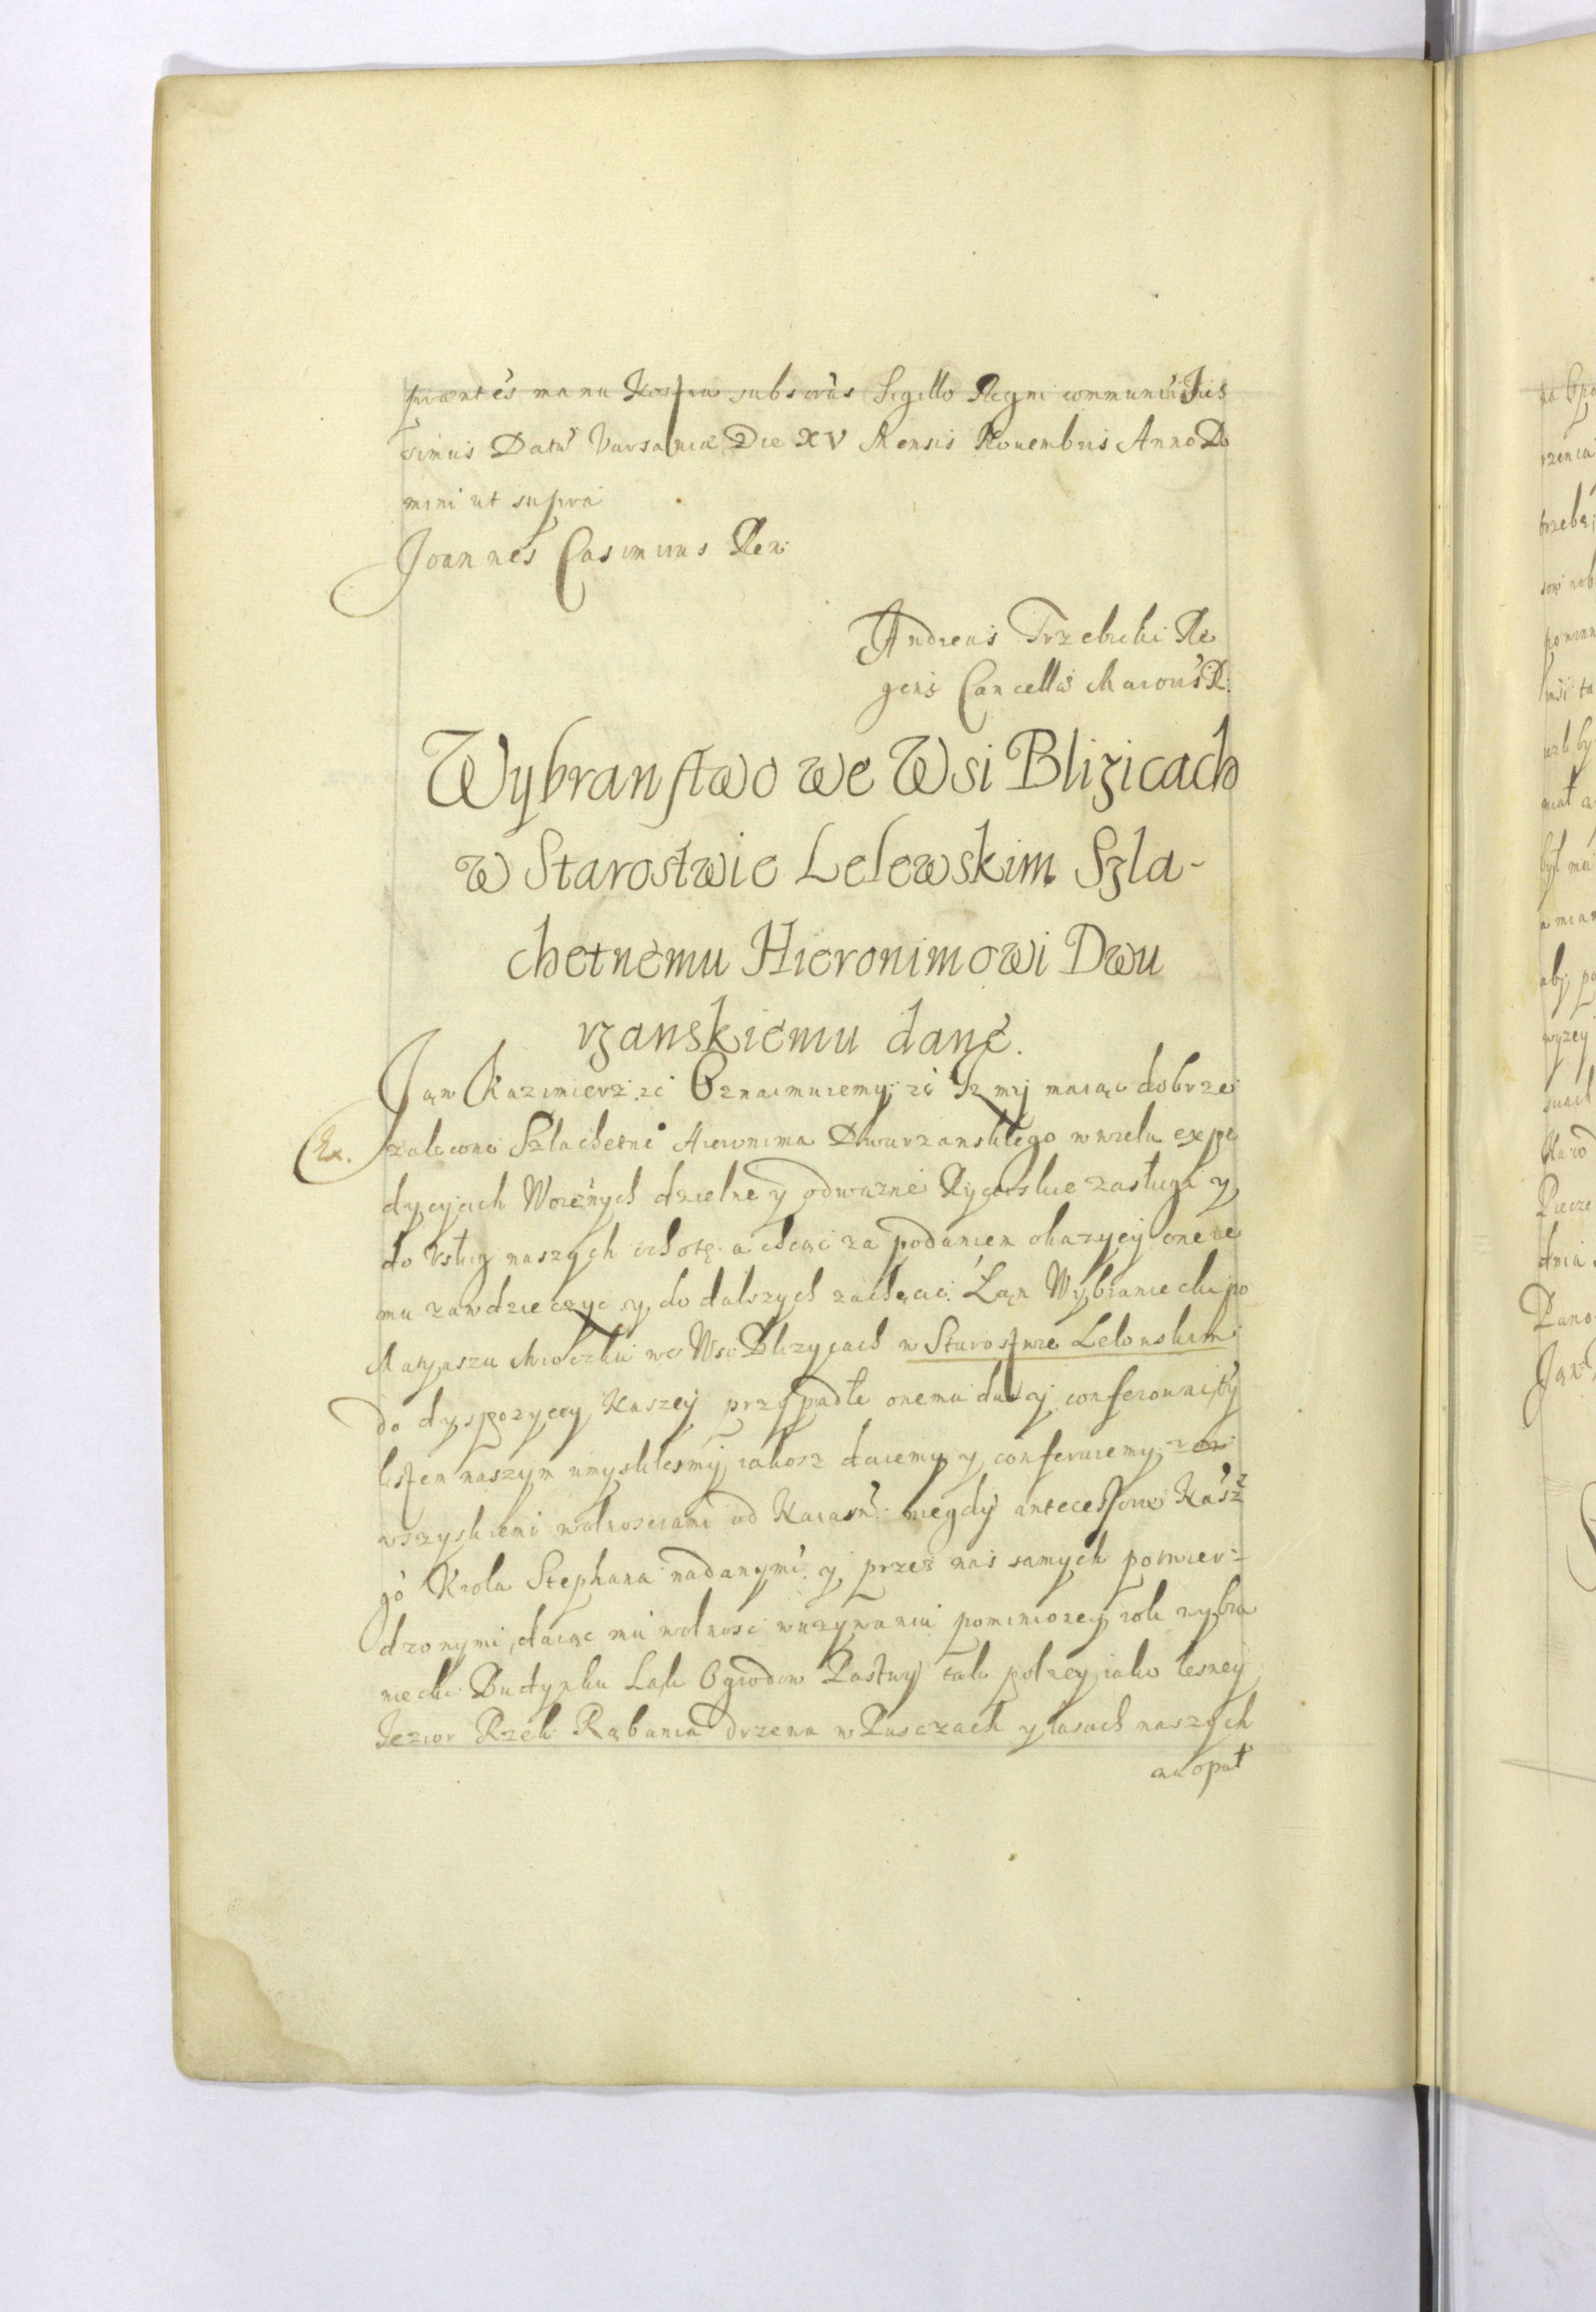 præntes manu Nostra subscrūs Sigillo Regni communiri Jus
simus Datū Varsaviæ Die XV Mensis Nouembris Anno Do
mini ut supra
Joannes Casimirus Rex
Andreas Trzebicki Re
gens Cancellæ Maioris R.
Wybranstwo we Wsi Blizicach
w Starostwie Lelewskim Szla-
chetnemu Hieronimowi Dwu
rzanskiemu dane.
Jan Kazimierz zc Oznaimuiemy zc Iz my maiąc dobrze
zalecone Szlachetne Hieronima Dwurzanskiego w wielu expe
dycyiach Woiēnych dzielne y odwazne Rycerskie zasługi y
do Vsług naszych ochotę a chcąc za podaniem okazyey onez ie
mu zawdzieczyc y do dalszych zachęcic Łan Wybraniecki po
Matyaszu Mroczku we Wsi Blizycach w Starostwie Lelowskim
do dyspozycey Naszey przypadłe onemu dac y conferowac tym
listem naszym umyslilesmy iakosz daiemy y conferuiemy ze
wszyskiemi wolnosciami od Naiasñ niegdy antecessora Nasz
go Krola Stephana nadanymi y przez nas samych potwier-
dzonymi, daiąc mu wolnosc w uzywaniu pomienioney roli wybra
niecki Budynku Łąk Ogrodow Pastwy tak polney iako lesney
Jezior Rzek Rąbania drzewa w Pusczach y lasach naszych
na opał
Ex.